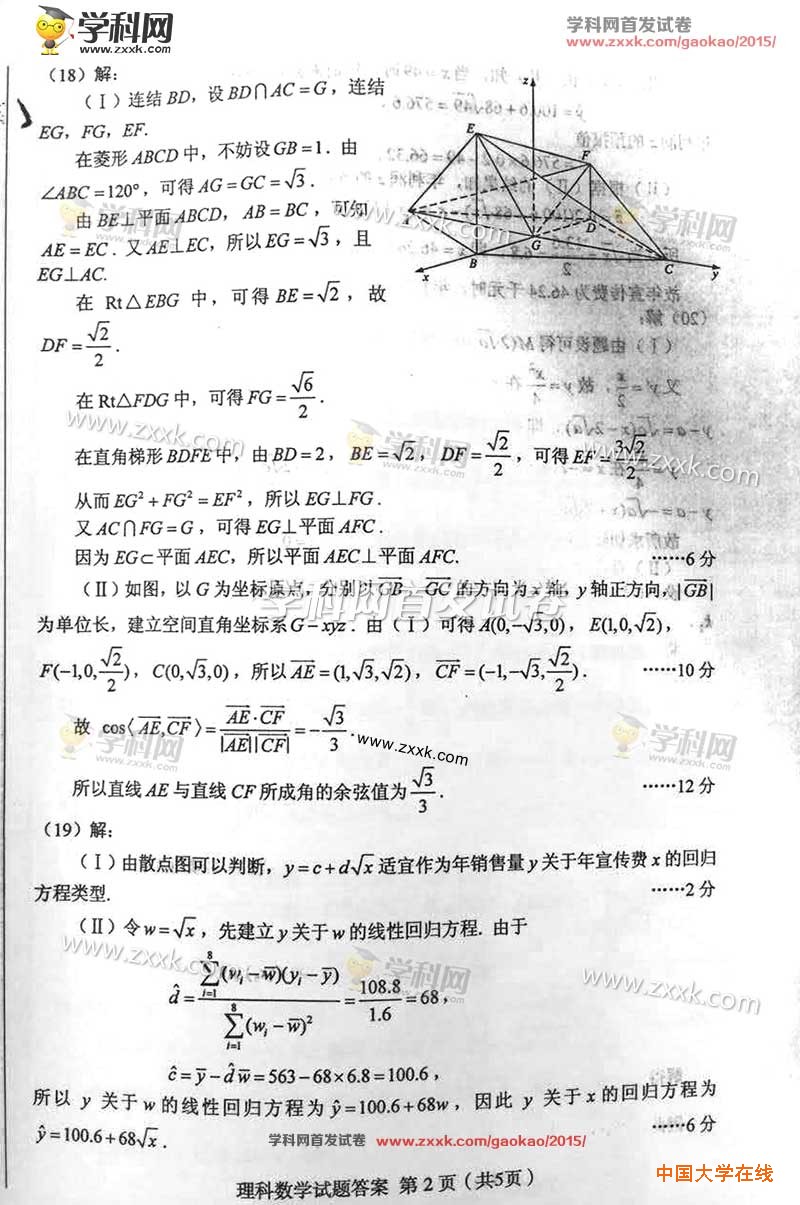 学科网
www.zxxk.com
学科网首发试卷
www.zxxk.com/gaokao/2015/
(18)解:
(Ⅰ)连结 BD,设 BD∩AC=G,连结
EG,FG,EF.
在菱形 ABCD 中,不妨设 GB=1.由
∠ABC=120°,可得 AG=GC=√3.
由 BE⊥平面 ABCD,AB=BC,可知
AE=EC.又 AE⊥EC,所以 EG=√3,且
EG⊥AC.
在 Rt△EBG 中,可得 BE=√2,故
DF=√2/2.
在 Rt△FDG 中,可得 FG=√6/2.
在直角梯形 BDFE 中,由 BD=2,BE=√2,DF=√2/2,可得 EF=3√2/2.
从而 EG²+FG²=EF²,所以 EG⊥FG.
又 AC∩FG=G,可得 EG⊥平面 AFC.
因为 EG⊂平面 AEC,所以平面 AEC⊥平面 AFC. ……6 分
(Ⅱ)如图,以 G 为坐标原点,分别以 GB,GC 的方向为 x 轴,y 轴正方向,|GB|
为单位长,建立空间直角坐标系 G-xyz.由(Ⅰ)可得 A(0,-√3,0),E(1,0,√2),
F(-1,0,√2/2),C(0,√3,0),所以 AE=(1,√3,√2),CF=(-1,-√3,√2/2). ……10 分
故 cos〈AE,CF〉=AE·CF/|AE||CF|=-√3/3.
所以直线 AE 与直线 CF 所成角的余弦值为 √3/3. ……12 分
(19)解:
(Ⅰ)由散点图可以判断,y=c+d√x 适宜作为年销售量 y 关于年宣传费 x 的回归
方程类型. ……2 分
(Ⅱ)令 w=√x,先建立 y 关于 w 的线性回归方程.由于
d̂=∑(i=1→8)(wᵢ-w̄)(yᵢ-ȳ)/∑(i=1→8)(wᵢ-w̄)²=108.8/1.6=68,
ĉ=ȳ-d̂w̄=563-68×6.8=100.6,
所以 y 关于 w 的线性回归方程为 ŷ=100.6+68w,因此 y 关于 x 的回归方程为
ŷ=100.6+68√x. ……6 分
学科网首发试卷 www.zxxk.com/gaokao/2015/
理科数学试题答案 第 2 页(共5页)
中国大学在线
z
E
F
A
D
G
B
C
x
y